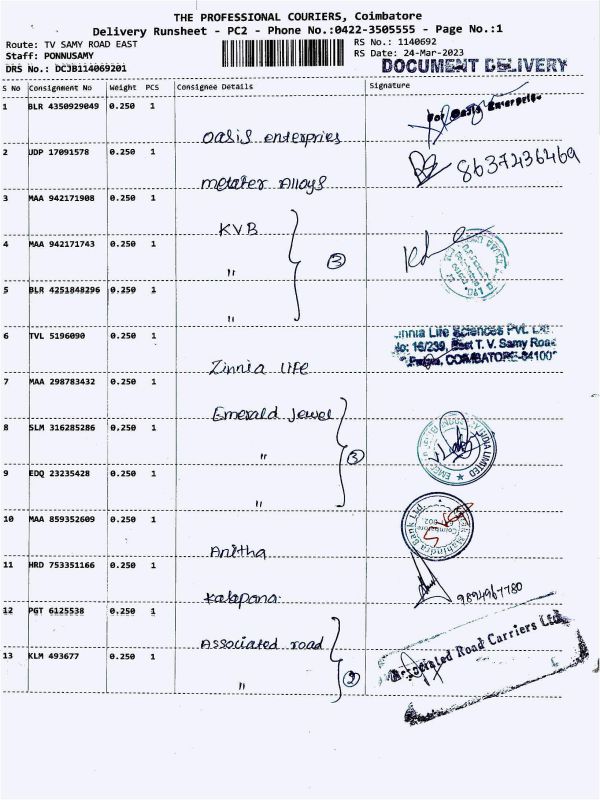 THE PROFESSIONAL COURIERS, Coimbatore
Delivery Runsheet - PC2 - Phone No.:0422-3505555 - Page No.:1
Route: TV SAMY ROAD EAST
RS No.: 1140692
Staff: PONNUSAMY
RS Date: 24-Mar-2023
DRS No.: DCJB114069201
DOCUMENT DELIVERY
S No Consignment No Weight PCS Consignee Details Signature
1 BLR 4350929049 0.250 1
For Oasis Enterprises
Oasis enterpries
2 UDP 17091578 0.250 1
8637436469
metafer Alloys
3 MAA 942171908 0.250 1
KVB
4 MAA 942171743 0.250 1
" 3
5 BLR 4251848296 0.250 1
"
6 TVL 5196090 0.250 1
Zinnia Life Sciences Pvt. Ltd.
No: 16/239, East T. V. Samy Road
COIMBATORE-641002
Zinnia Life
7 MAA 298783432 0.250 1
Emerald Jewel
8 SLM 316285286 0.250 1
" 3
9 EDQ 23235428 0.250 1
"
10 MAA 859352609 0.250 1
Anitha
11 HRD 753351166 0.250 1
9894967780
Kalapana
12 PGT 6125538 0.250 1
Associated road
Associated Road Carriers Ltd
13 KLM 493677 0.250 1
" 2